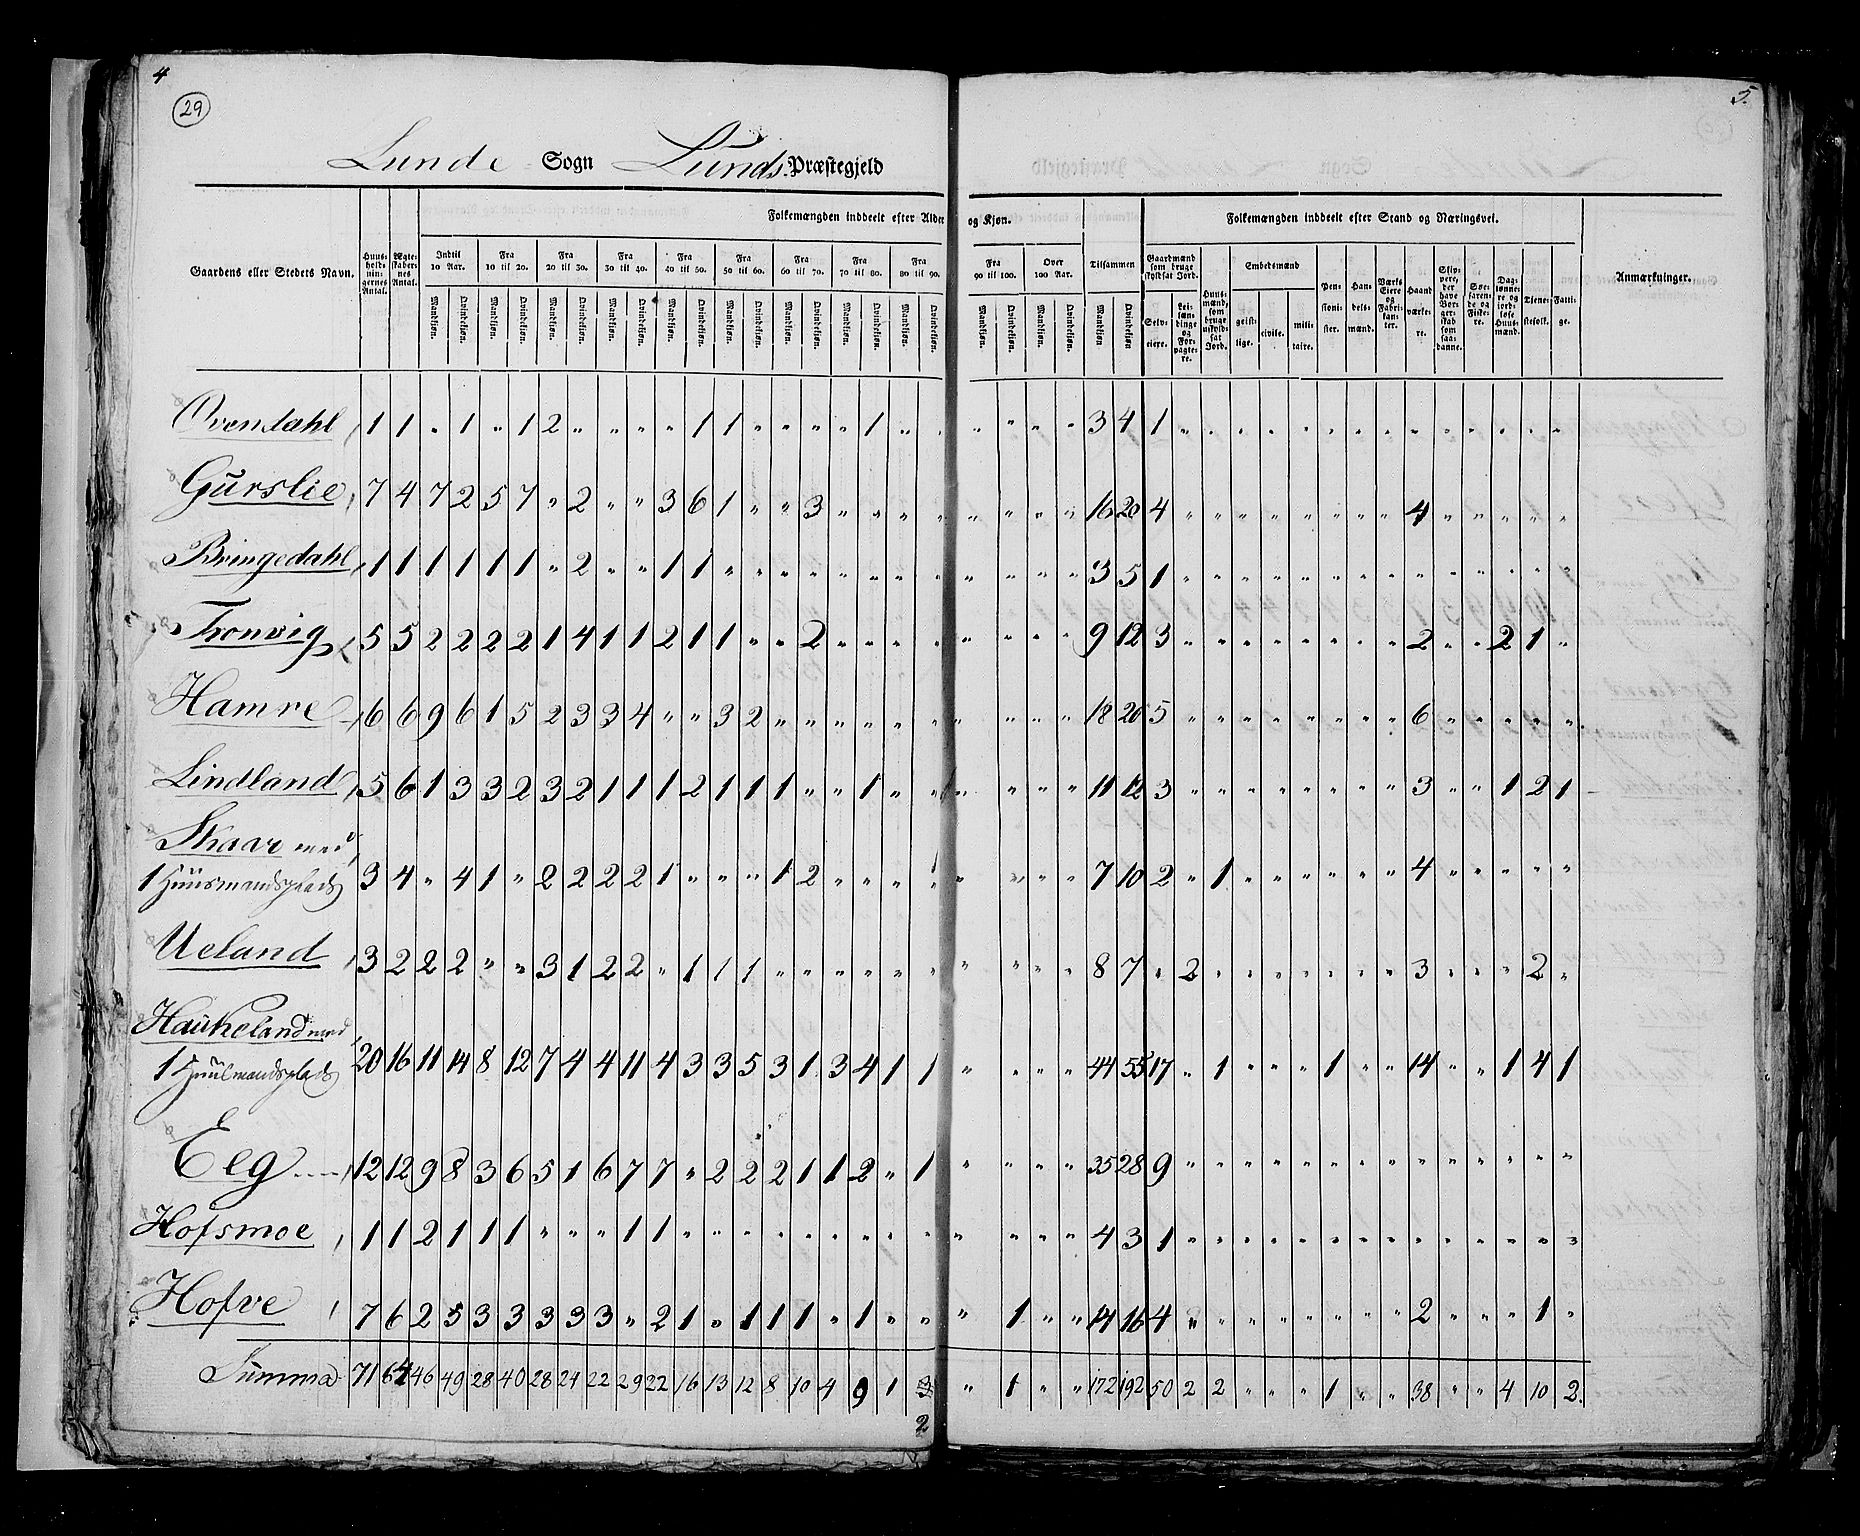 4
5.
29
Lunde Sogn Lunds Præstegjeld
Gaardens eller Steders Navn.
Huus-holdningernes Antal.
Ægteskabernes Antal.
Folkemængden inddeelt efter Alder og Kjøn.
Indtil 10 Aar. Fra 10 til 20. Fra 20 til 30. Fra 30 til 40. Fra 40 til 50. Fra 50 til 60. Fra 60 til 70. Fra 70 til 80. Fra 80 til 90. Fra 90 til 100. Over 100 Aar. Tilsammen
Mandkjøn. Qvindekjøn.
Folkemængden inddeelt efter Stand og Næringsvei.
Gaardmænd som bruge skyldsat Jord. Selveiere.
Huusmænd, som bruge uskyldsat Jord.
Embedsmænd geistlige. civile. militaire.
Pensionister. Handelsmænd. Værkseiere og Fabrikanter. Haandværkere.
Tjenestefolk. Fattige.
Anmærkninger.
Ovendahl 1 1 „ 1 „ 1 2 „ „ „ „ 1 1 „ „ „ „ 1 „ „ „ „ „ „ 3 4 1 „ „ „ „ „ „ „ „ „ „ „ „ „ „
Gurslie 7 4 7 2 5 7 „ 2 „ „ 3 6 1 „ „ 3 „ „ „ „ „ „ „ „ 16 20 4 „ „ „ „ „ „ „ „ 4 „ „ „ „ „
Bringedahl 1 1 1 1 1 1 „ 2 „ „ 1 1 „ „ „ „ „ „ „ „ „ „ „ „ 3 5 1 „ „ „ „ „ „ „ „ „ „ „ „ „ „
Tronvig 5 5 2 2 2 2 1 4 1 1 2 1 1 „ „ 2 „ „ „ „ „ „ „ „ 9 12 3 „ „ „ „ „ „ „ „ 2 „ „ 2 1 „
Hamre 6 6 9 6 1 5 2 3 3 4 „ „ 3 2 „ „ „ „ „ „ „ „ „ „ 18 20 5 „ „ „ „ „ „ „ „ 6 „ „ „ „ „
Lindland 5 6 1 3 3 2 3 2 1 1 1 2 1 1 1 „ „ 1 „ 1 „ „ „ „ 11 12 3 „ „ „ „ „ „ „ „ 3 „ „ 1 2 1
Skaar med
1 Huusmandsplads 3 4 „ 4 1 „ 2 2 2 2 1 „ „ „ 1 2 „ „ „ „ „ „ „ „ 7 10 2 „ 1 „ „ „ „ „ „ 4 „ „ „ „ „
Ueland 3 2 2 2 „ „ 3 1 2 2 „ 1 1 1 „ „ „ „ „ „ „ „ „ „ 8 7 „ 2 „ „ „ „ „ „ „ 3 „ „ „ 2 „
Haukeland med
1 Huusmandsplads 20 16 11 14 8 12 7 4 4 11 4 3 3 5 3 1 3 4 1 1 „ „ „ „ 44 55 17 „ 1 „ „ „ 1 „ „ 14 „ „ 1 4 1
Eeg 12 12 9 8 3 6 5 1 6 7 7 „ 2 2 2 1 1 2 „ 1 „ „ „ „ 35 28 9 „ „ „ „ „ „ „ „ „ „ „ „ „ „
Hofsmoe 1 1 2 1 1 1 „ „ „ 1 1 „ „ „ „ „ „ „ „ „ „ „ „ „ 4 3 1 „ „ „ „ „ „ „ „ „ „ „ „ „ „
Hofve 7 6 2 5 3 3 3 3 3 „ 2 1 „ 1 1 1 „ 1 „ „ „ 1 „ „ 14 16 4 „ „ „ „ „ „ „ „ 2 „ „ „ 1 „
Summa 71 64 46 49 28 40 28 24 22 29 22 16 13 12 8 10 4 9 1 3 „ 1 „ „ 172 192 50 2 2 „ „ „ 1 „ „ 38 „ „ 4 10 2.
2